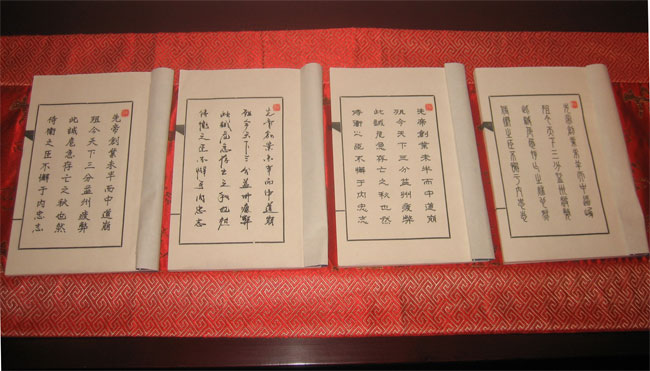 先帝創業未半而中道崩
殂今天下三分益州疲弊
此誠危急存亡之秋也然
侍衛之臣不懈于內忠志
先帝創業未半而中道崩
殂今天下三分益州疲弊
此誠危急存亡之秋也然
侍衛之臣不懈于內忠志
先帝創業未半而中道崩
殂今天下三分益州疲弊
此誠危急存亡之秋也然
侍衛之臣不懈于內忠志
先帝創業未半而中道崩
殂今天下三分益州疲弊
此誠危急存亡之秋也然
侍衛之臣不懈于內忠志